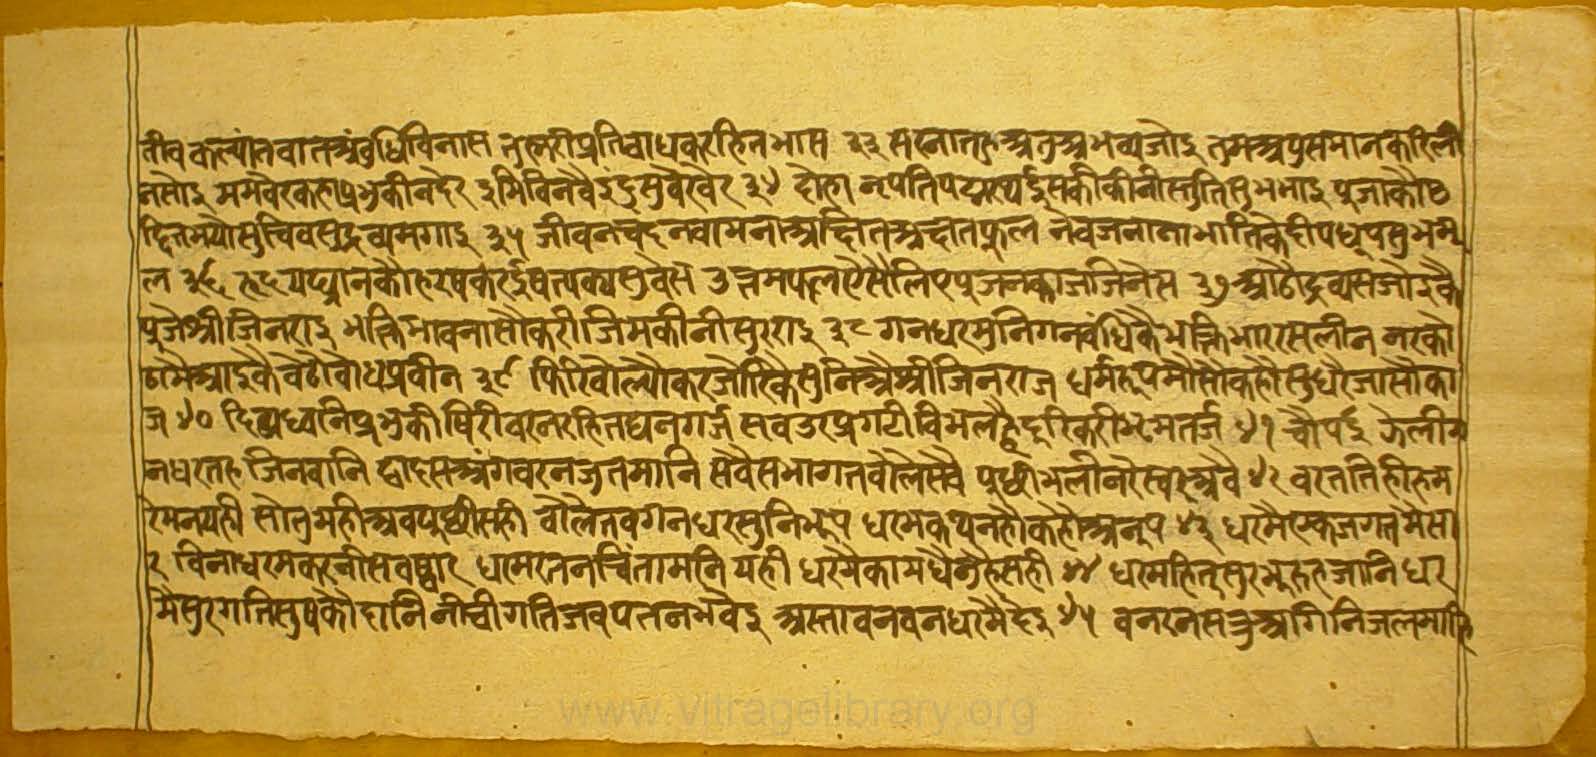 तीव कल्यांतवातअंबुधिविनास तुह्मरीप्रतिबाधकरहितभास ३३ सरनातहअनुअभव्यजोइ तुमअपुसमानकरिली
नसोइ ममवेरकहाप्रभुकीनदेर इमिविनवैइंद्रसुवेरवेर ३४ दोहा नृपतिपद्मरथ्यइसकीकीनीस्तुतिसुभभाइ पुजाकौउ
द्दितभयौसुचिवसुद्रव्यमगाइ ३५ जीवनचदनवामनाअछितअछातफुल नेवजनानाभातिकेदीपधूपसुभमू
ल ३६ हृदयध्यानकौहरषकर सुवेस उत्तमफलऐसैलिएपुजनकाजजिनेस ३७ आठौद्रव्यसजोइकै
पुजेश्रीजिनराइ भक्तिभावनासौकरीजिमकीनीसुरराइ ३८ गनधरमुनिगनवंधिकैभक्तिभाररसलीन नरको
ठामैआइकैवैठौवोधप्रवीन ३९ फिरिवोल्यौकरजोरिकैसुनिऔश्रीजिनराज धर्मसौकहौसुधरैजासौका
ज ४० दिव्यध्वनिप्रभुकीषिरीवरनरहितघनगर्ज सवउरप्रगटीविमलह्वैदूरिकरीभ्रमतर्ज ४१ चौपई झेलीग
नधरतह जिनवानि द्वादसअंगवरनजुतमानि सवैसभागतवोलैसवै पुछीभलीनरेस्वरअवै ४२ वरततिहीहम
रेमनयही सोतुमहीअवपुछीसही वोलेतवगनधरसुनिभूप धरमकथनहौकहौअनूप ४३ धरमैएकजगतमैसा
र विनाधरमकरनीसवछार धरमरतनचिंतामनि यही धरमैकामधैनुहैसही ४४ धरमहितसुरभूरुहजानि धर
मैसुरगतिसुषकौदानि नीचीगतिजवपतनभवेइ अस्तावनवनधरमैदेइ ४५ वनरनसत्रुअगिनिजलमाहि